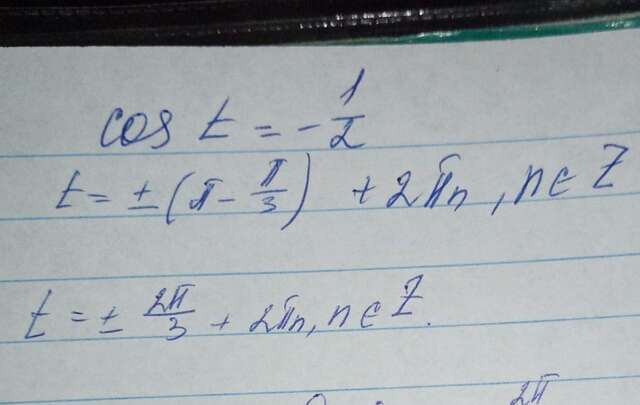 cos t = - 1/2
t = ± (π - π/3) + 2πn, n ∈ Z
t = ± 2π/3 + 2πn, n ∈ Z.
2π